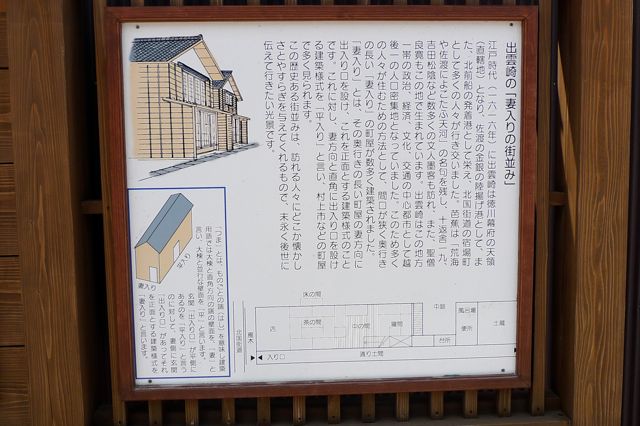 出雲崎の「妻入りの街並み」
江戸時代（一六一六年）に出雲崎は徳川幕府の天領
（直轄地）となり、佐渡の金銀の陸揚げ港として、ま
た、北前船の発着港として栄え、北国街道の宿場町
として多くの人々が行き交いました。芭蕉は「荒海
や佐渡によこたふ天河」の名句を残し、十返舎一九、
吉田松陰など数多くの文人墨客も訪れ、また、聖僧
良寛もこの地で生まれています。出雲崎はこの地方
一帯の政治、経済、文化、交通の中心都市として越
後一の人口密集地となっていました。このため多く
の人々が住むための方法として、間口が狭く奥行き
の長い「妻入り」の町屋が数多く建築されました。
「妻入り」とは、その奥行きの長い町屋の妻方向に
出入り口を設け、これを正面とする建築様式のこと
です。これに対し、妻方向と直角に出入り口を設け
る建築様式を「平入り」と言い、村上市などの町屋
で多く見られます。
この歴史ある街並みは、訪れる人々にどこか懐かし
さとやすらぎを与えてくれるもので、末永く後世に
伝えて行きたい光景です。
平入り
妻入り
「つま」とは、ものごとの端（はし）を意味し建築
用語では大棟と直角方向の端の壁面を、「妻」と
言い、大棟と並行な壁面を「平」と言います。
玄関「出入り口」が平側に
あるのを「平入り」と言う
のに対して、妻側に玄関
「出入り口」があってそれ
を正面とする建築様式を
「妻入り」と言います。
北国街道
雁木
床の間
店
茶の間
中の間
寝間
中庭
台所
風呂場
便所
土蔵
入り口
通り土間